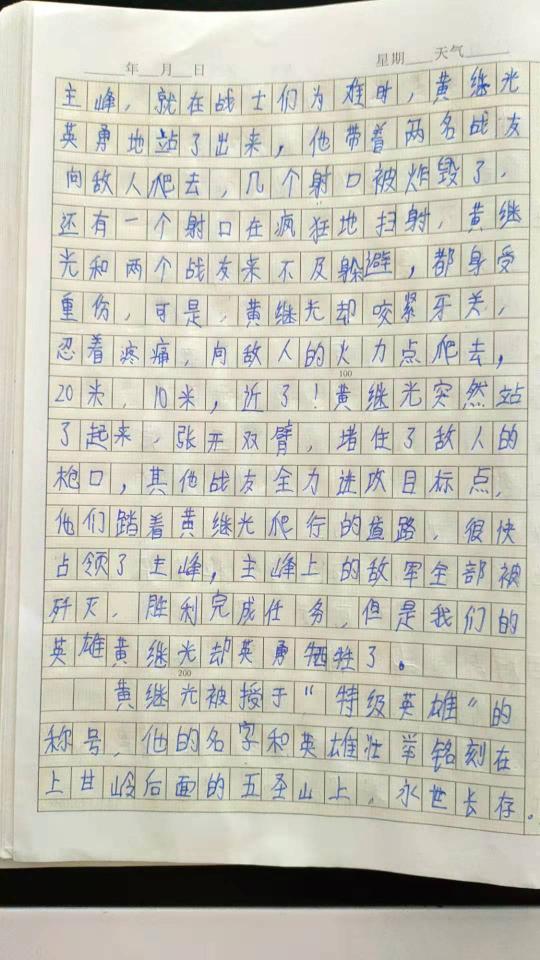 年 月 日 星期 天气
主峰，就在战士们为难时，黄继光
英勇地站了出来，他带着两名战友
向敌人爬去，几个射口被炸毁了，
还有一个射口在疯狂地扫射，黄继
光和两个战友来不及躲避，都身受
重伤，可是，黄继光却咬紧牙关，
忍着疼痛，向敌人的火力点爬去，
100
20米，10米，近了！黄继光突然站
了起来，张开双臂，堵住了敌人的
枪口，其他战友全力进攻目标点，
他们踏着黄继光爬行的道路，很快
占领了主峰，主峰上的敌军全部被
歼灭，胜利完成任务，但是我们的
英雄黄继光却英勇牺牲了。
200
黄继光被授于“特级英雄”的
称号，他的名字和英雄壮举铭刻在
上甘岭后面的五圣山上，永世长存。